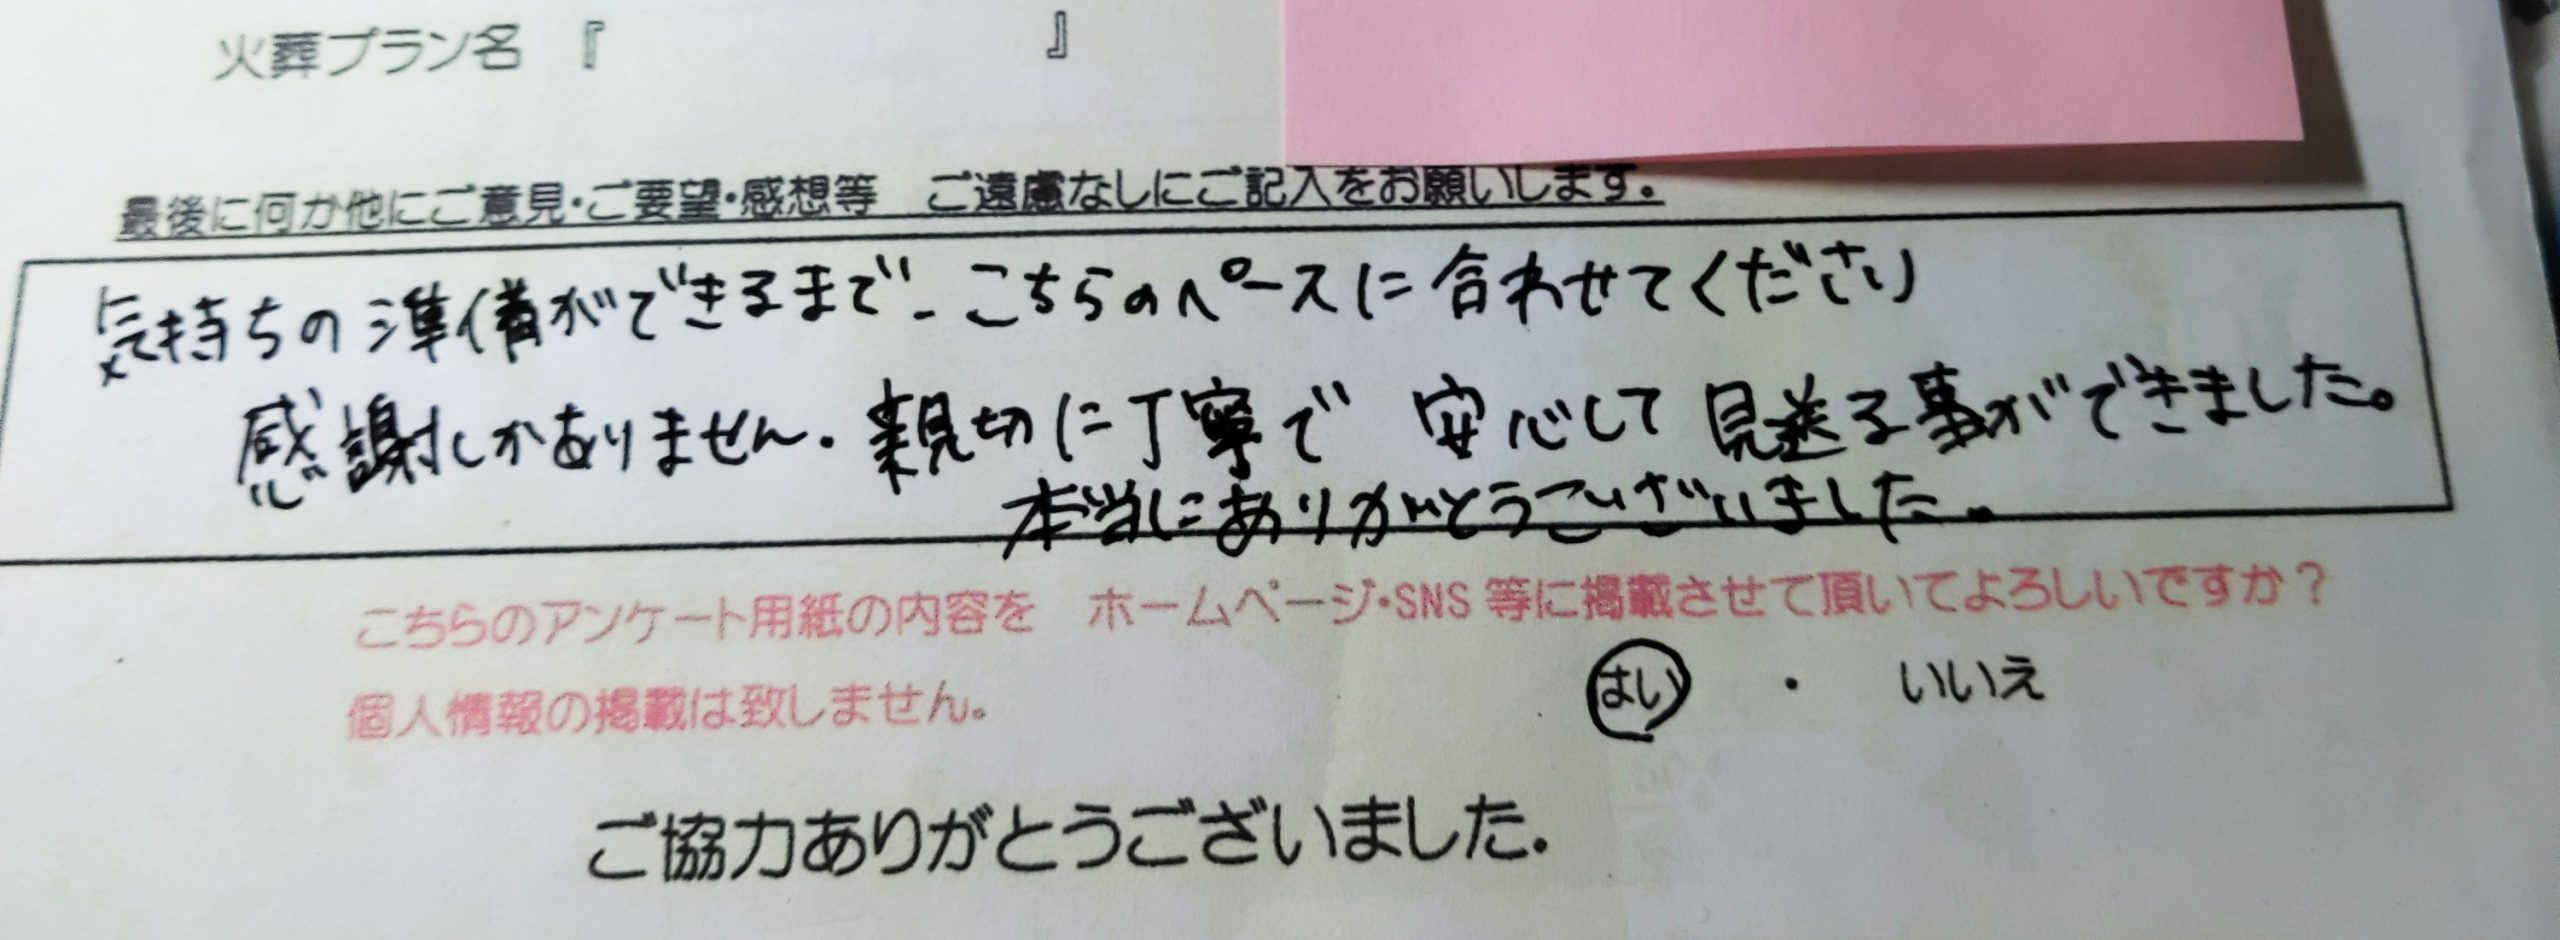 火葬プラン名 『 』
最後に何か他にご意見・ご要望・感想等 ご遠慮なしにご記入をお願いします。
気持ちの準備ができるまで、こちらのペースに合わせてくださり
感謝しかありません。親切に丁寧で 安心して 見送る事ができました。
本当にありがとうございました。
こちらのアンケート用紙の内容を ホームページ・SNS 等に掲載させて頂いてよろしいですか？
個人情報の掲載は致しません。 はい ・ いいえ
ご協力ありがとうございました。